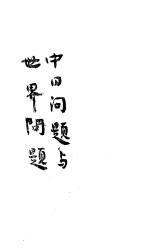 中日问题与
世界問题